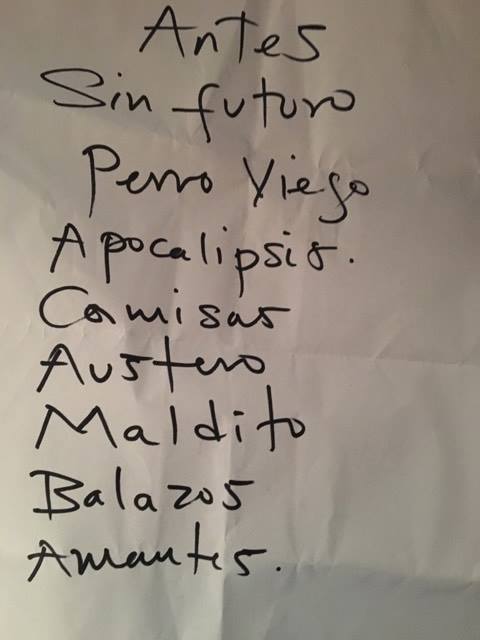 Antes
Sin futuro
Perro Viejo
Apocalipsis.
Camisas
Austero
Maldito
Balazos
Amantes.